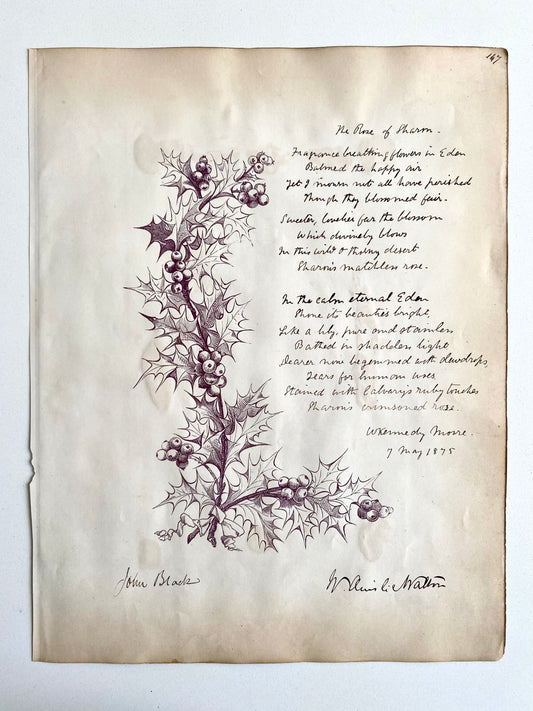 147
The Rose of Sharon.
Fragrance breathing flowers in Eden
Balmed the happy air
Yet I mourn not all have perished
Though they blossomed fair.
Sweeter, lovelier far the blossom
Which divinely blows
In this wild & thorny desert
Sharon's matchless rose.
In the calm eternal Eden
Shone its beauties bright,
Like a lily, pure and stainless
Bathed in shadeless light
Dearer now begemmed with dewdrops,
Tears for human woes
Stained with Calvary's ruby touches
Sharon's crimsoned rose.
W Kennedy Moore.
7 May 1875
John Black
W. Ainslie Walton